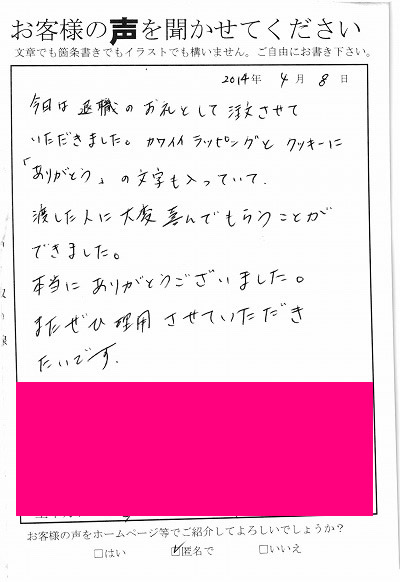 お客様の声を聞かせてください
文章でも箇条書きでもイラストでも構いません。ご自由にお書き下さい。
2014年 4月 8日
今日は退職のお礼として注文させて
いただきました。カワイイラッピングとクッキーに
「ありがとう」の文字も入っていて、
渡した人に大変喜んでもらうことが
できました。
本当にありがとうございました。
またぜひ理用させていただき
たいです。
お客様の声をホームページ等でご紹介してよろしいでしょうか?
□はい ☑匿名で □いいえ